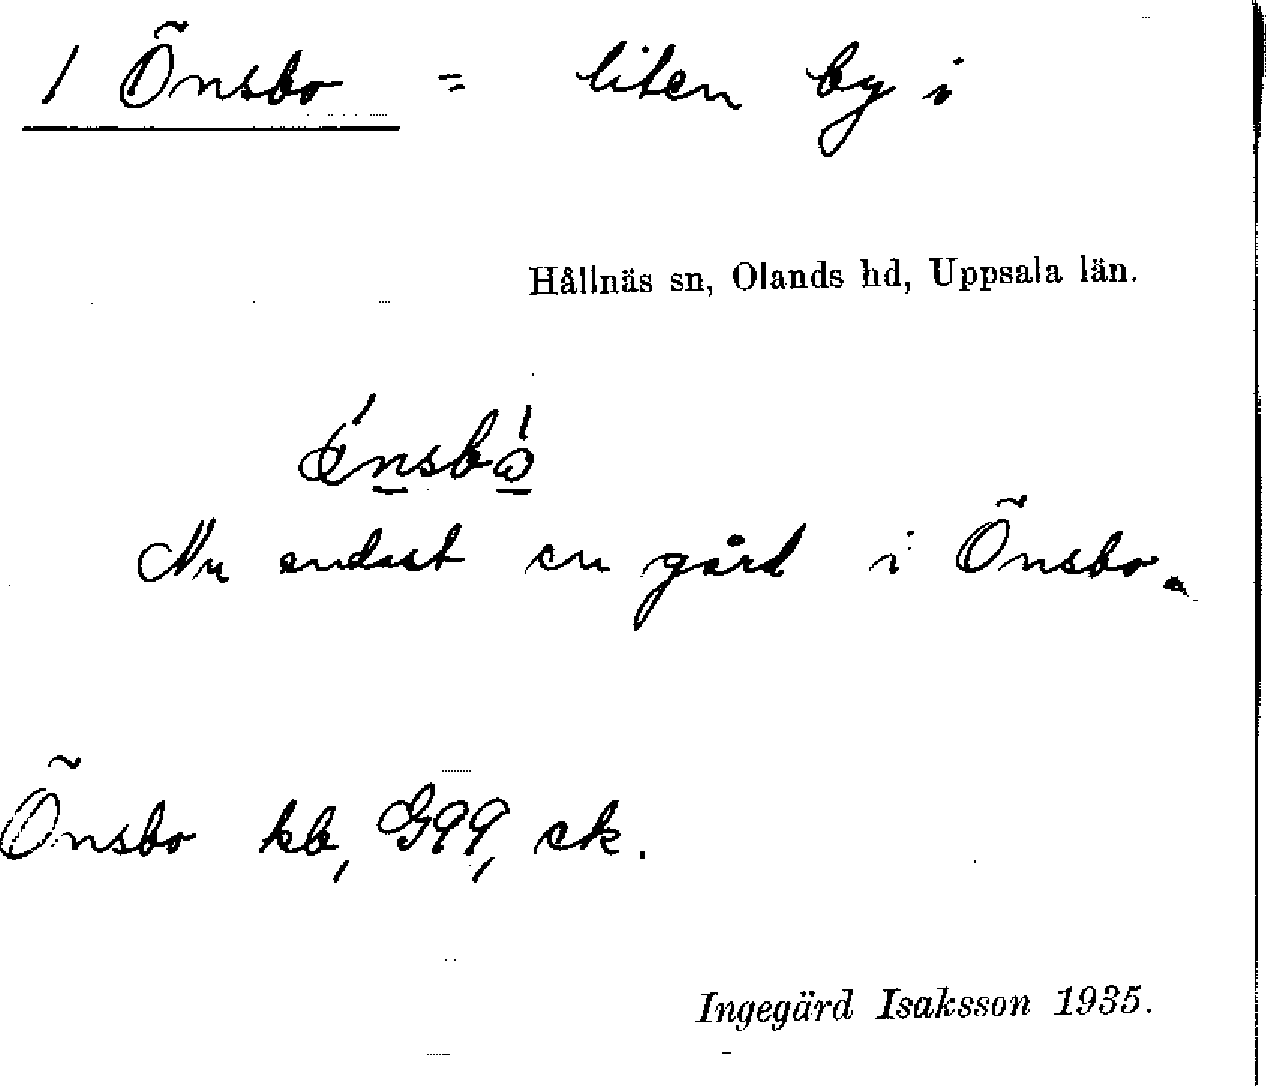 1 Önsbo = liten by i
Hållnäs sn, Olands hd, Uppsala län.
Nu endast en gård i Önsbo.
Önsbo kb, G99, ek.
Ingegärd Isaksson 1935.